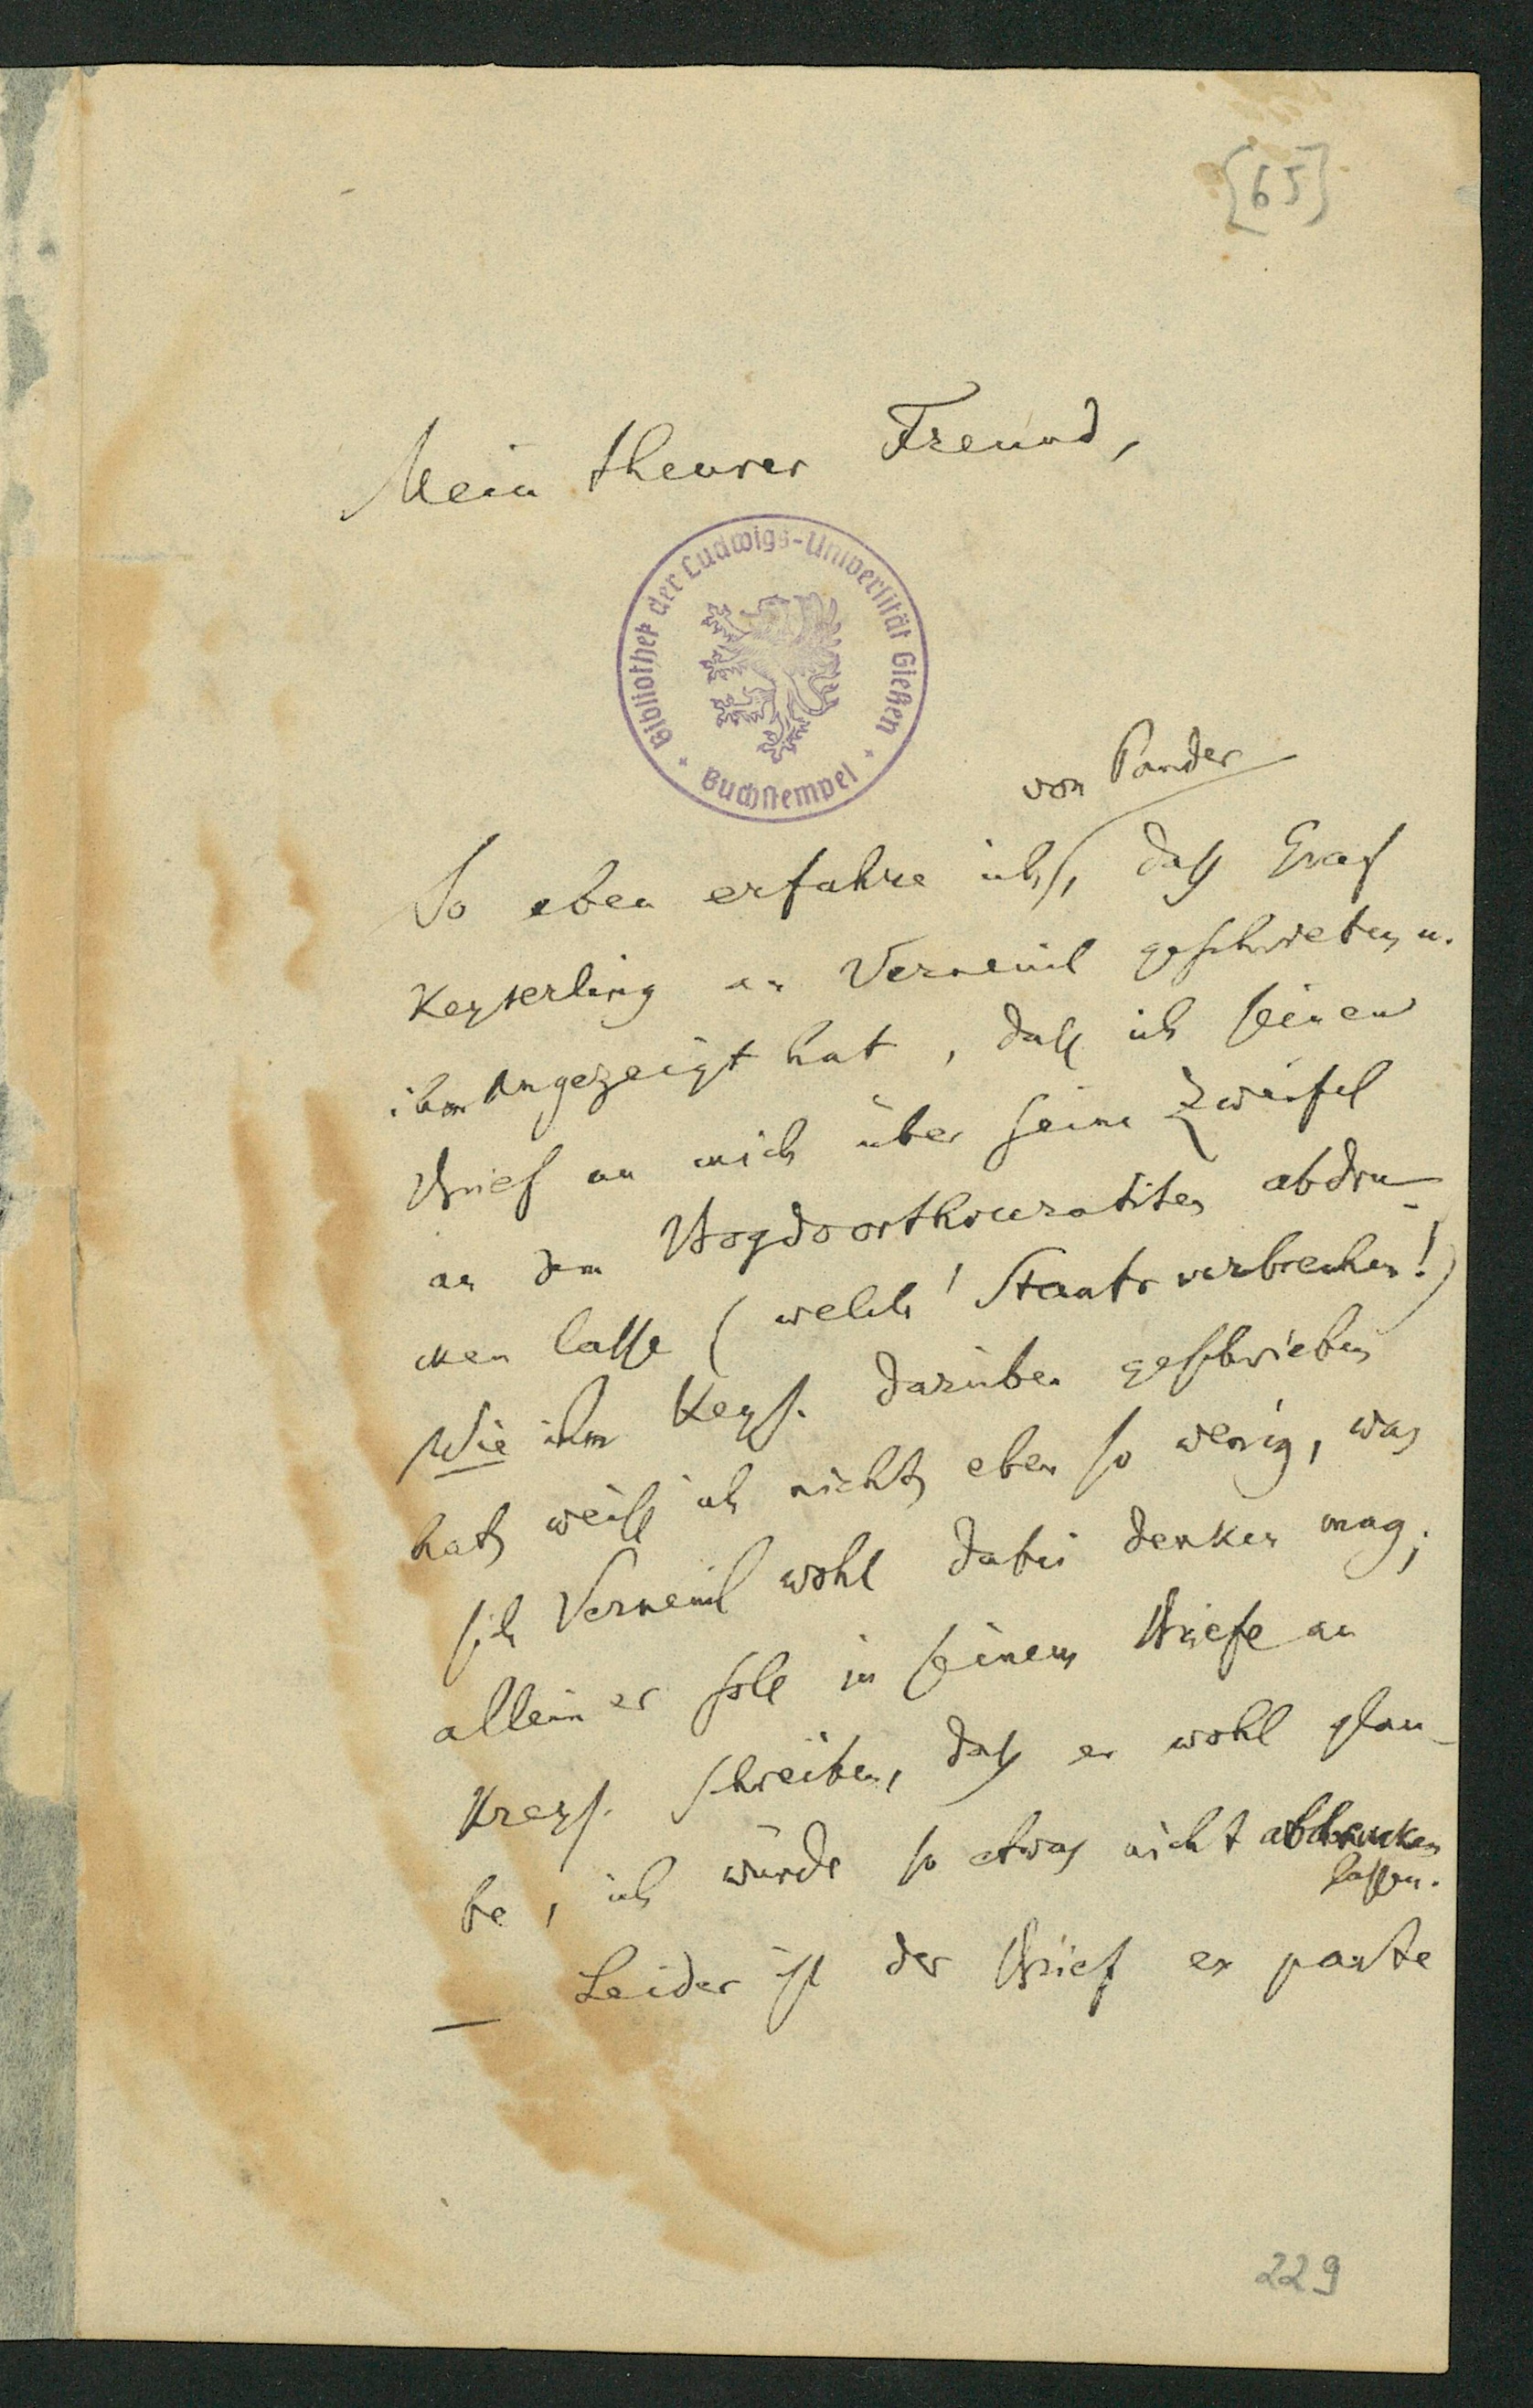 [65]
Mein theurer Freund,
Bibliothek der Ludwigs-Universität Gießen
Buchstempel
von Pander
So eben erfahre ich, daß Graf
Keyserling an Verneuil geschrieben u.
ihm angezeigt hat, daß ich seinen
Brief an mich über seine Zweifel
an dem Bogdoorthoceratiten abdru-
cken lasse (welch' Staatsverbrechen!)
Wie ihm Keys. darüber geschrieben
hat, weiß ich nicht, eben so wenig, was
sich Verneuil wohl dabei denken mag;
allein er soll in seinem Briefe an
Keys. schreiben, daß er wohl glau-
be, ich würde so etwas nicht abdrucken
lassen.
— Leider ist der Brief ex parte
229